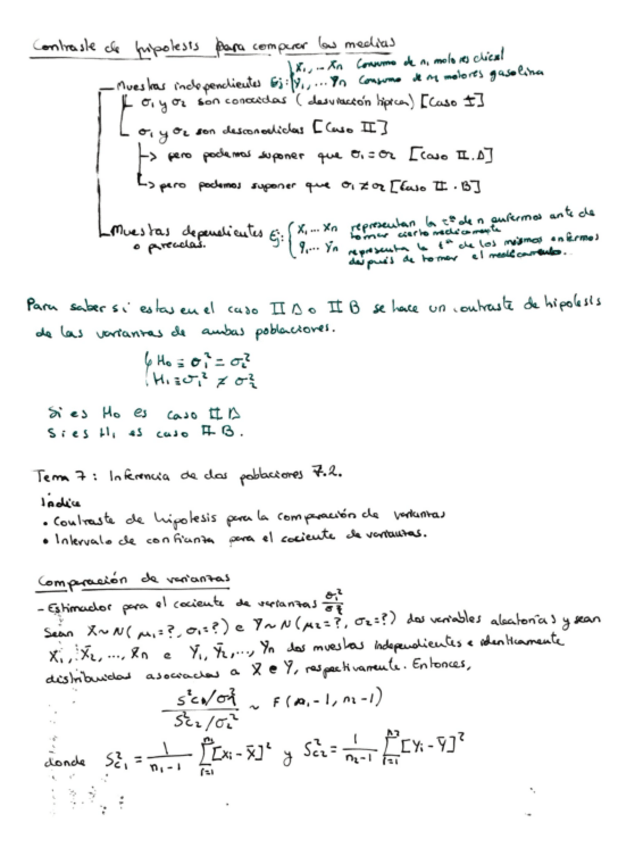 Contraste de hipotesis para comparar las medias
Muestras independientes Ej: { X₁, ... Xn Consumo de n₁ motores diesel
Y₁, ... Yn Consumo de n₂ motores gasolina
σ₁ y σ₂ son conocidas (desviación típica) [Caso I]
σ₁ y σ₂ son desconocidas [Caso II]
-> pero podemos suponer que σ₁ = σ₂ [Caso II.A]
-> pero podemos suponer que σ₁ ≠ σ₂ [Caso II.B]
Muestras dependientes Ej: { X₁ ... Xn representan la Tª de n enfermos ante de
o pareadas. tomar cierto medicamento
Y₁ ... Yn representa la tª de los mismos enfermos
después de tomar el medicamento..
Para saber si estas en el caso II A o II B se hace un contraste de hipotesis
de las varianzas de ambas poblaciones.
{ H₀ ≡ σ₁² = σ₂²
H₁ ≡ σ₁² ≠ σ₂²
Si es H₀ es caso II A
Si es H₁ es caso II B.
Tema 7: Inferencia de dos poblaciones 7.2.
Índice
• Contraste de hipotesis para la comparación de varianzas
• Intervalo de confianza para el cociente de varianzas.
Comparación de varianzas
- Estimador para el cociente de varianzas σ₁²/σ₂²
Sean X ~ N(μ₁=?, σ₁=?) e Y ~ N(μ₂=?, σ₂=?) dos variables aleatorias y sean
X₁, X₂, ..., Xn e Y₁, Y₂, ..., Yn dos muestras independientes e identicamente
distribuidas asociadas a X e Y, respectivamente. Entonces,
S²c₁/σ₁² / S²c₂/σ₂² ~ F(n₁-1, n₂-1)
donde S²c₁ = 1/(n₁-1) Σ(i=1, n₁) [Xi - X̄]² y S²c₂ = 1/(n₂-1) Σ(i=1, n₂) [Yi - Ȳ]²